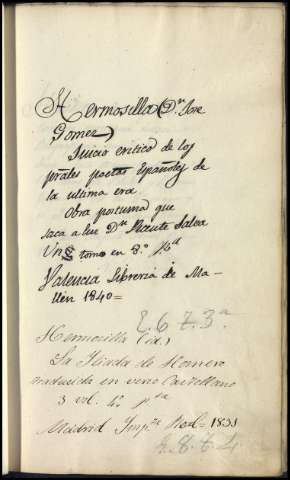 Hermosilla (Dn Jose
Gomez)
Juicio critico de los
prales poetas Españoles de
la ultima era.
Obra postuma que
saca a luz Dn Vicente Salva
Un tomo en 8º Pta
Valencia Libreria de Ma-
llen 1840=
E. 6 T. 3ª
Hermosilla (id.)
La Iliada de Homero
traducida en verso Castellano
3 vol. 4º pta
Madrid Impta Real= 1831
E. 8. t. 4